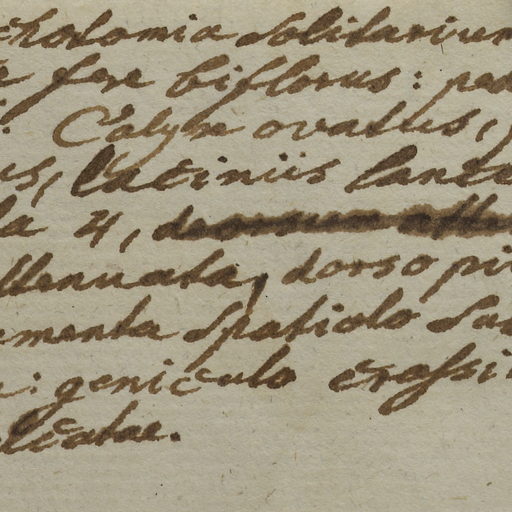 chotomia solitarium
fere biflorus: ped
Calyx ovatus,
us, laciniis lance
la 4,
ttenuata, dorso pi
amenta spatiolo su
: geniculo crassi
licatae.